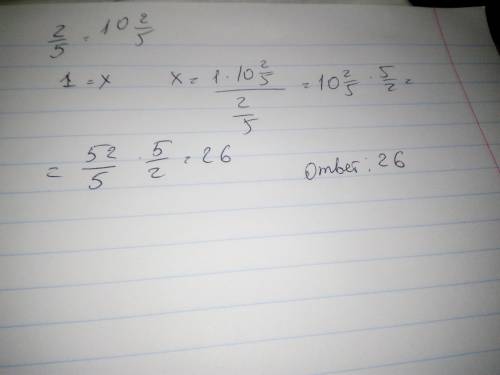 2/5 = 10 2/5
1 = x x = (1 · 10 2/5)/(2/5) = 10 2/5 · 5/2 =
= 52/5 · 5/2 = 26 Ответ: 26